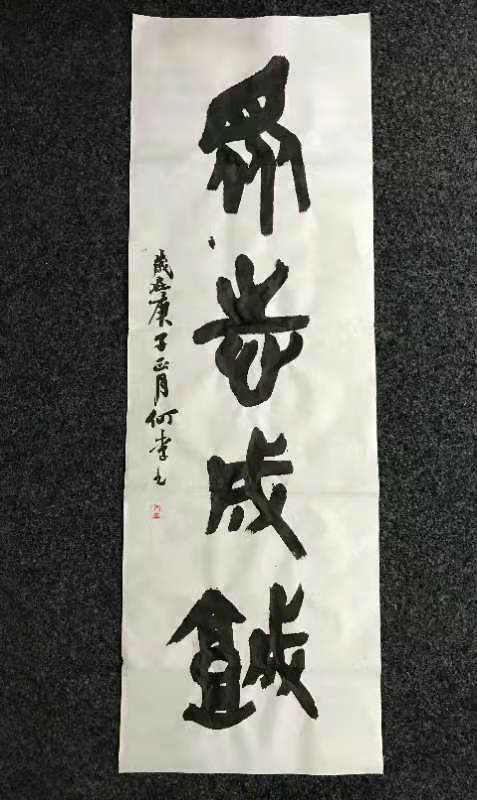 眾志成城
歲在庚子正月何